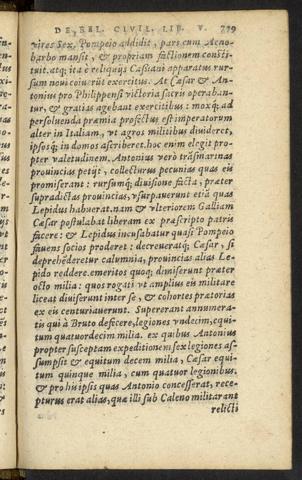 DE BEL. CIVIL. LIB. V. 779
vires Sex. Pompeio addidit, pars cum Aeno-
barbo mansit, & propriam factionem consti-
tuit. atq; ita è reliquijs Caßiani apparatus rur-
sum noui coiu rũt exercitus. At Cæsar & An-
tonius pro Philippensi victoria sacris operaban-
tur, & gratias agebant exercitibus: moxq́; ad
persoluenda præmia profectus est imperatorum
alter in Italiam, vt agros militibus diuideret,
ipsosq́; in domos ascriberet. hoc enim elegit pro-
pter valetudinem. Antonius verò trãsmarinas
prouincias petijt, collecturus pecunias quas eis
promiserant: rursumq́; diuisione facta, præter
supradictas prouincias, vsurpauerunt etiã quas
Lepidus habuerat. nam & vlteriorem Galliam
Cæsar postulabat liberam ex præscripto patris
facere: & Lepidus incusabatur quasi Pompeio
fauens socios proderet: decreueratq́; Cæsar, si
deprehẽderetur calumnia, prouincias alias Le-
pido reddere. emeritos quoq; dimiserunt præter
octo milia: quos rogati vt amplius eis militare
liceat diuiserunt inter se, & cohortes prætorias
ex eis centuriauerunt. Supererant annumera-
tis qui à Bruto defecere, legiones vndecim, equi-
tum quatuordecim milia. ex quibus Antonius
propter susceptam expeditionem sex legiones as-
sumpsit & equitum decem milia, Cæsar equi-
tum quinque milia, cum quatuor legionibus.
& pro his ipsis quas Antonio concesserat, rece-
pturus erat alias, quæ illi sub Caleno militarant
relicti